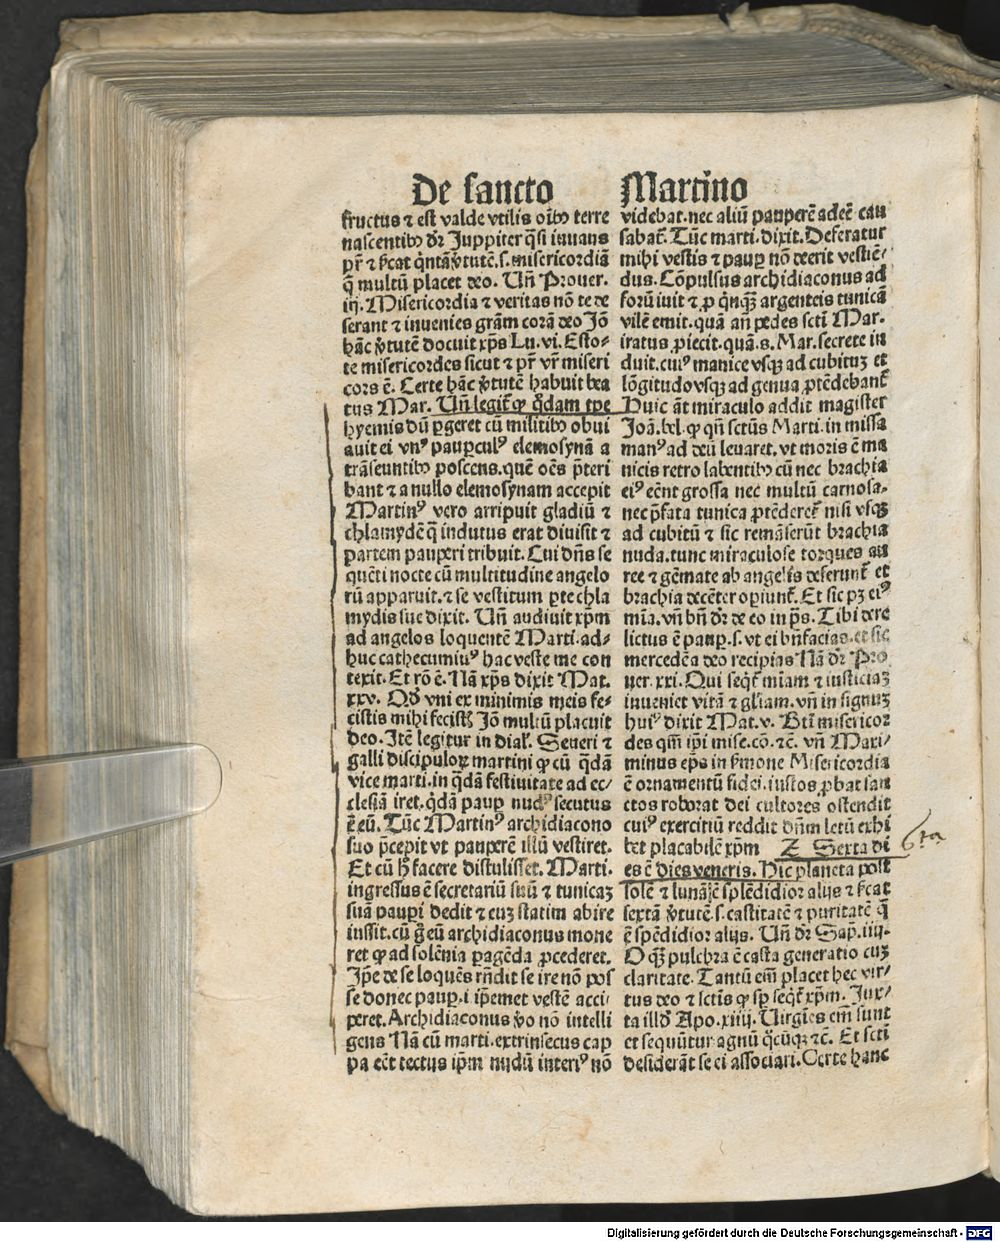 De sancto Martino
fructus ⁊ est valde vtilis oībꝰ terre
nascentibꝰ dr̄ Juppiter q̄si iuuans
pr̄ ⁊ sīcat q̄ntā v̓tutē.s. misericordiā
q̄ multū placet deo. Un̄ Prouer.
iij. Misericordia ⁊ veritas nō te de
serant ⁊ inuenies grām corā deo Jō
hāc v̓tutē docuit xp̄s Lu. vi. Esto-
te misericordes sicut ⁊ pr̄ vr̄ miseri
cors ē. Certe hāc v̓tutē habuit bea
tus Mar. Un̄ legit̄ ꝙ q̄dam tp̄e
hyemis dū ꝑgeret cū militibꝰ obui
auit ei vnꝰ pauꝑculꝰ elemosynā a
trāseuntibꝰ poscens. quē oēs p̄teri
bant ⁊ a nullo elemosynam accepit
Martinꝰ vero arripuit gladiū ⁊
chlamydē q̄ indutus erat diuisit ⁊
partem pauperi tribuit. Cui dn̄s se
quēti nocte cū multitudine angelo
rū apparuit. ⁊ se vestitum ꝑte chla
mydis sue dixit. Un̄ audiuit xp̄m
ad angelos loquentē Marti. ad-
huc cathecuminꝰ hac veste me con
texit. Et rō ē. Nā xp̄s dixit Mat.
xxv. Qd̓ vni ex minimis meis fe-
cistis mihi fecistꝭ Jō multū placuit
deo. Jtē legitur in dial̓. Seueri ⁊
galli discipuloꝝ martini ꝙ cū q̄dā
vice marti. in q̄dā festiuitate ad ec-
clesiā iret. q̄dā pauꝑ nudꝰ secutus
ē eū. Tūc Martinꝰ archidiacono
suo p̄cepit vt pauperē illū vestiret.
Et cū h̓ facere distulisset. Marti.
ingressus ē secretariū suū ⁊ tunicaꝫ
suā pauꝑi dedit ⁊ euꝫ statim abire
iussit. cū g̊ eū archidiaconus mone
ret ꝙ ad solēnia ꝑagēda ꝓcederet.
Jpe de se loquēs rn̄dit se ire nō pos
se donec pauꝑ. i ip̄emet vestē acci
peret. Archidiaconus v̓o nō intelli
gens Nā cū marti. extrinsecus cap
pa eēt tectus ip̄m nudū interiꝰ nō
videbat. nec aliū pauperē adeē cau
sabat̄. Tūc marti. dixit. Deferatur
mihi vestis ⁊ pauꝑ nō deerit vestiē-
dus. Cōpulsus archidiaconus ad
forū iuit ⁊ ꝓ q̄nqꝫ argenteis tunicā
vilē emit. quā an̄ pedes sctī Mar.
iratus ꝓiecit. quā .s. Mar. secrete in
duit. cuiꝰ manice vsqꝫ ad cubituꝫ et
lōgitudo vsqꝫ ad genua ꝓtēdebant̄
Huic āt miraculo addit magister
Joā. bel. ꝙ qn̄ sctūs Marti. in missa
manꝰ ad deū leuaret. vt moris ē ma
nicis retro labentibꝰ cū nec brachia
eiꝰ eēnt grossa nec multū carnosa.
nec p̄fata tunica ꝓtēderet̄ nisi vsqꝫ
ad cubitū ⁊ sic remāserūt brachia
nuda. tunc miraculose torques au
ree ⁊ gēmate ab angelis deferunt̄ et
brachia decēter oꝑiunt̄. Et sic pꝫ eiꝰ
mīa. vn̄ bn̄ dr̄ de eo in p̄s. Tibi dere
lictus ē pauꝑ. s. vt ei bn̄facias. et sic
mercedē a deo recipias Nā dr̄ Pro
uer. xxi. Qui seqt̄ miam ⁊ iusticiaꝫ
inueniet vitā ⁊ gl̓iam. vn̄ in signuꝫ
huiꝰ dixit Mat. v. Bt̄i misericor
des qm̄ ip̄i mise. cō. ⁊c. vn̄ Maxi-
minus ep̄s in s̓mone Misericordia
ē ornamentū fidei. iustos ꝓbat san
ctos roborat dei cultores ostendit
cuiꝰ exercitiū reddit dn̄m letū exhi
bet placabilē xp̄m Z Sexta di 6ta
es ē dies veneris. Hic planeta post
solē ⁊ lunā ē splēdidior alijs ⁊ sīcat
sextā v̓tutē .s. castitatē ⁊ puritatē q̄
ē spēdidior alijs. Un̄ dr̄ Sap̄. iiij.
O qꝫ pulchra ē casta generatio cuꝫ
claritate. Tantū em̄ placet hec vir-
tus deo ⁊ sctīs ꝙ sꝑ seqt̄ xp̄m. Jux-
ta illd̓ Apo. xiiij. Uirgies em̄ sunt
et sequūtur agnū q̊cūqꝫ ⁊c. Et sctī
desiderāt se ei associari. Certe hanc
Digitalisierung gefördert durch die Deutsche Forschungsgemeinschaft - DFG